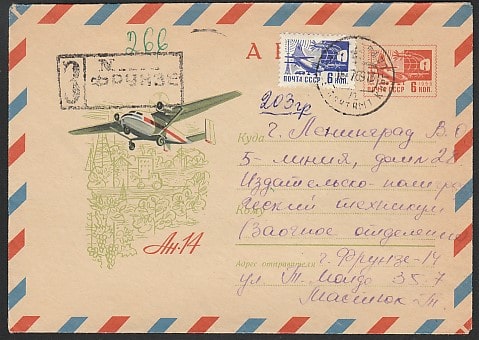 266
АВ
З
ФРУНЗЕ
ПОЧТА СССР 6 КОП.
ПОЧТА СССР 6 КОП.
203гр
Куда г. Ленинград В.О
5-линия, дом 28
Издательско-полигра
Кому фический техникум
(Заочное отделение
Адрес отправителя г. Фрунзе-14
ул. Т-Молдо 35-7
Ан-14